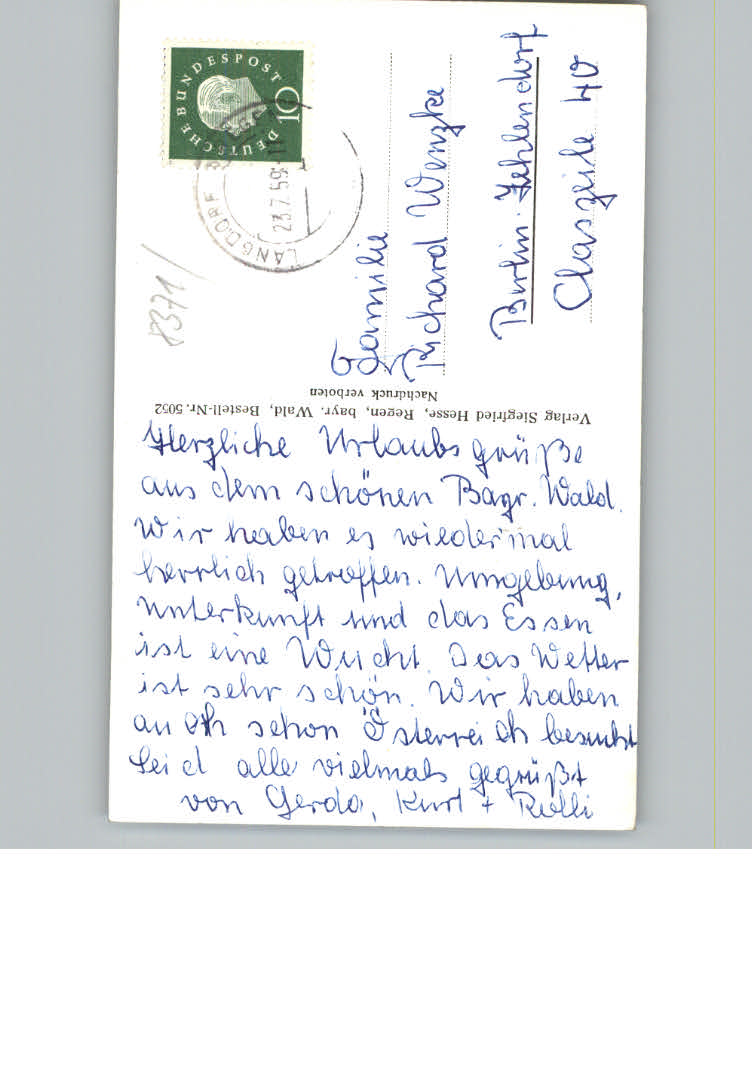 Herzliche Urlaubsgrüße
aus dem schönen Bayr. Wald.
Wir haben es wiedermal
herrlich getroffen. Umgebung,
Unterkunft und das Essen
ist eine Wucht. Das Wetter
ist sehr schön. Wir haben
auch schon Österreich besucht
Seid alle vielmals gegrüßt
von Gerda, Kurt +
Verlag Siegfried Hesse, Regen, bayr. Wald, Bestell-Nr. 5052
Nachdruck verboten
Familie
Richard Wenzke
Berlin-Zehlendorf
Claszeile 40
DEUTSCHE BUNDESPOST
10
LANGDORF
23.7.59
8371/